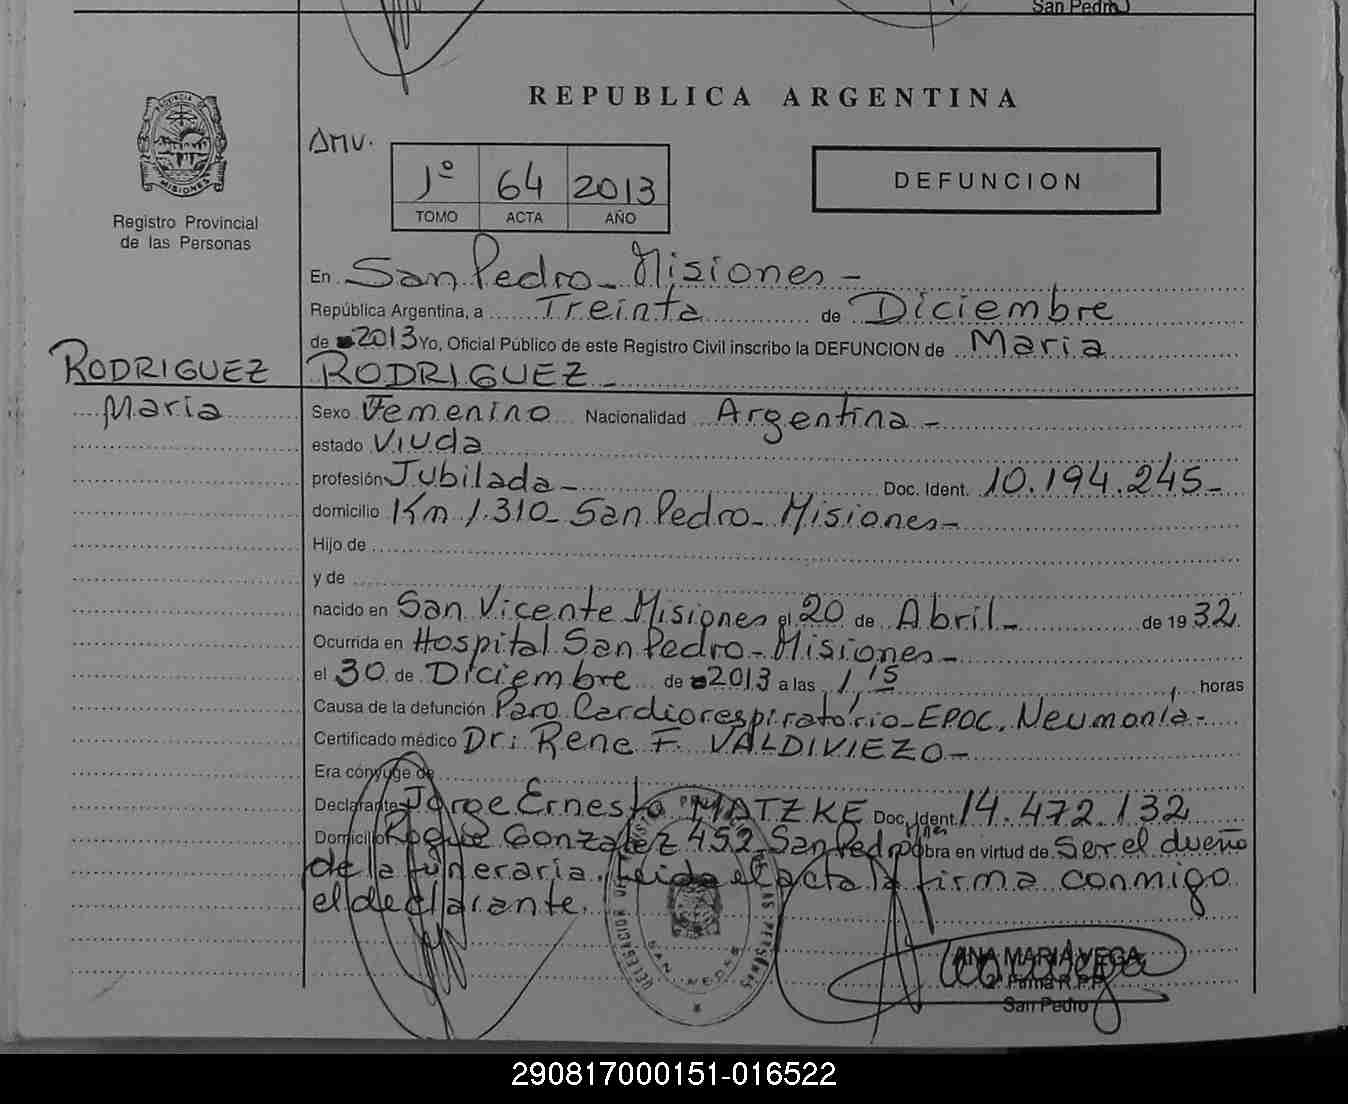 San Pedro
REPUBLICA ARGENTINA
PROVINCIA DE
MISIONES
Registro Provincial
de las Personas
1º 64 2013
TOMO ACTA AÑO
DEFUNCION
En San Pedro - Misiones -
República Argentina, a Treinta de Diciembre
de 2013 Yo, Oficial Público de este Registro Civil inscribo la DEFUNCION de Maria
RODRIGUEZ RODRIGUEZ -
Maria Sexo Femenino Nacionalidad Argentina -
estado Viuda
profesión Jubilada - Doc. Ident. 10.194.245 -
domicilio Km 1.310 - San Pedro - Misiones -
Hijo de
y de
nacido en San Vicente Misiones el 20 de Abril - de 1932
Ocurrida en Hospital San Pedro - Misiones -
el 30 de Diciembre de 2013 a las 1,15 horas
Causa de la defunción Paro Cardiorespiratório - EPOC. Neumonía -
Certificado médico Dr: Rene F. VALDIVIEZO -
Era cónyuge de
Declarante Jorge Ernesto MATZKE Doc. Ident. 14.472.132
Domicilio Roque Gonzalez 452 San Pedro Mnes obra en virtud de Ser el dueño
de la funeraria. Leida el acta la firma conmigo
el declarante.
DELEGACION DEL REGISTRO PROVINCIAL DE LAS PERSONAS
SAN PEDRO
ANA MARIA VEGA
2º Firma R.P.P.
San Pedro
290817000151-016522